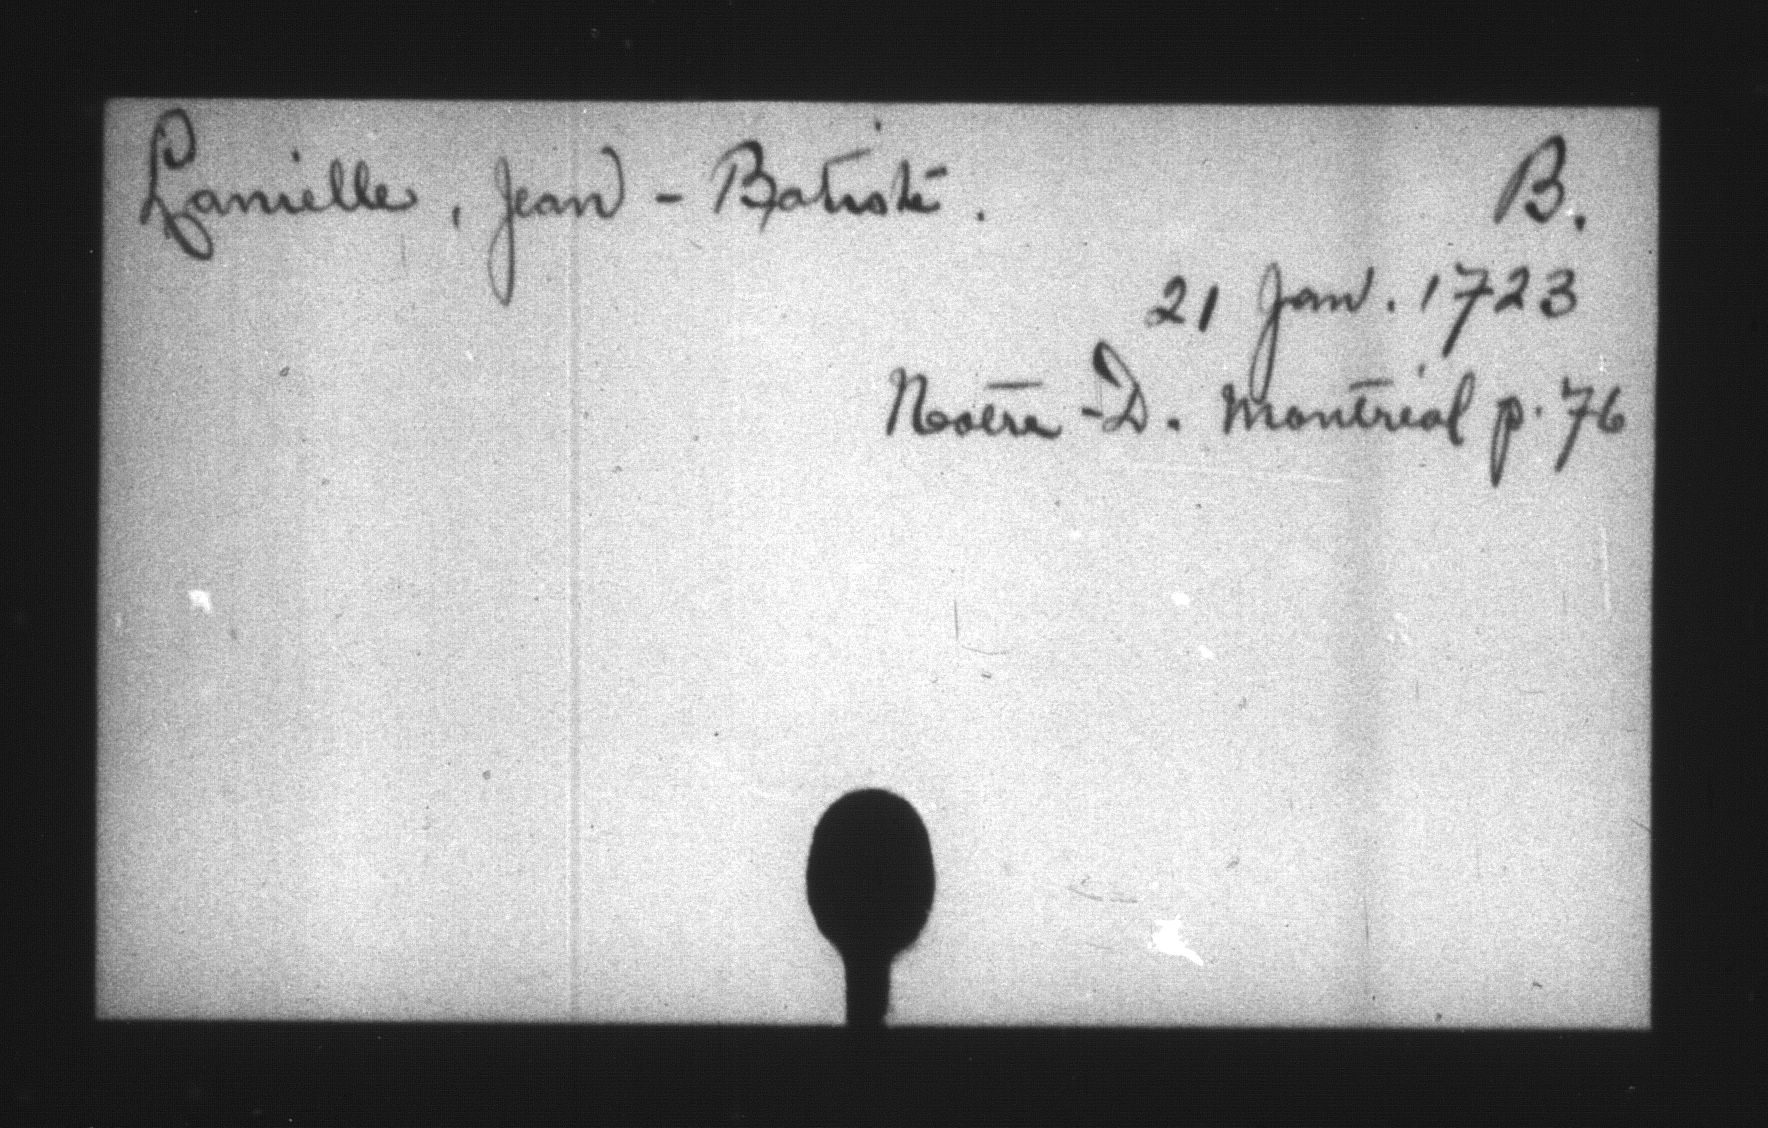 Lanielle, Jean-Batiste. B.
21 Jan. 1723
Notre-D. Montréal p. 76